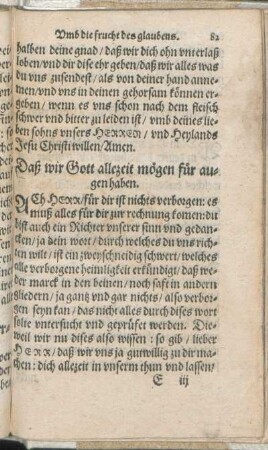 Vmb die frucht des glaubens. 82
halben deine gnad / daß wir dich ohn vnterlaß
loben / vnd dir dise ehr geben / daß wir alles was
du vns zusendest / als von deiner hand annemen /
vnd vns in deinen gehorsam können ergeben /
wenn es vns schon nach dem fleisch
schwer vnd bitter zu leiden ist / vmb deines lieben
sohns vnsers HERREN / vnd Heylands
Jesu Christi willen / Amen.
Daß wir Gott allezeit mögen für augen
haben.
ACh HERR / für dir ist nichts verborgen: es
muß alles für dir zur rechnung komen: du
bist auch ein Richter vnserer sinn vnd gedancken /
ja dein wort / durch welches du vns richten
wilt / ist ein zweyschneidig schwert / welches
alle verborgene heimligkeit erkündigt / daß weder
marck in den beinen / noch safft in andern
gliedern / ja gantz vnd gar nichts / also verborgen
seyn kan / das nicht alles durch dises wort
solte vntersucht vnd geprüfet werden. Dieweil
wir nu dises also wissen: so gib / lieber
HERR / daß wir vns ja gutwillig zu dir machen:
dich allezeit in vnserm thun vnd lassen /
E iij